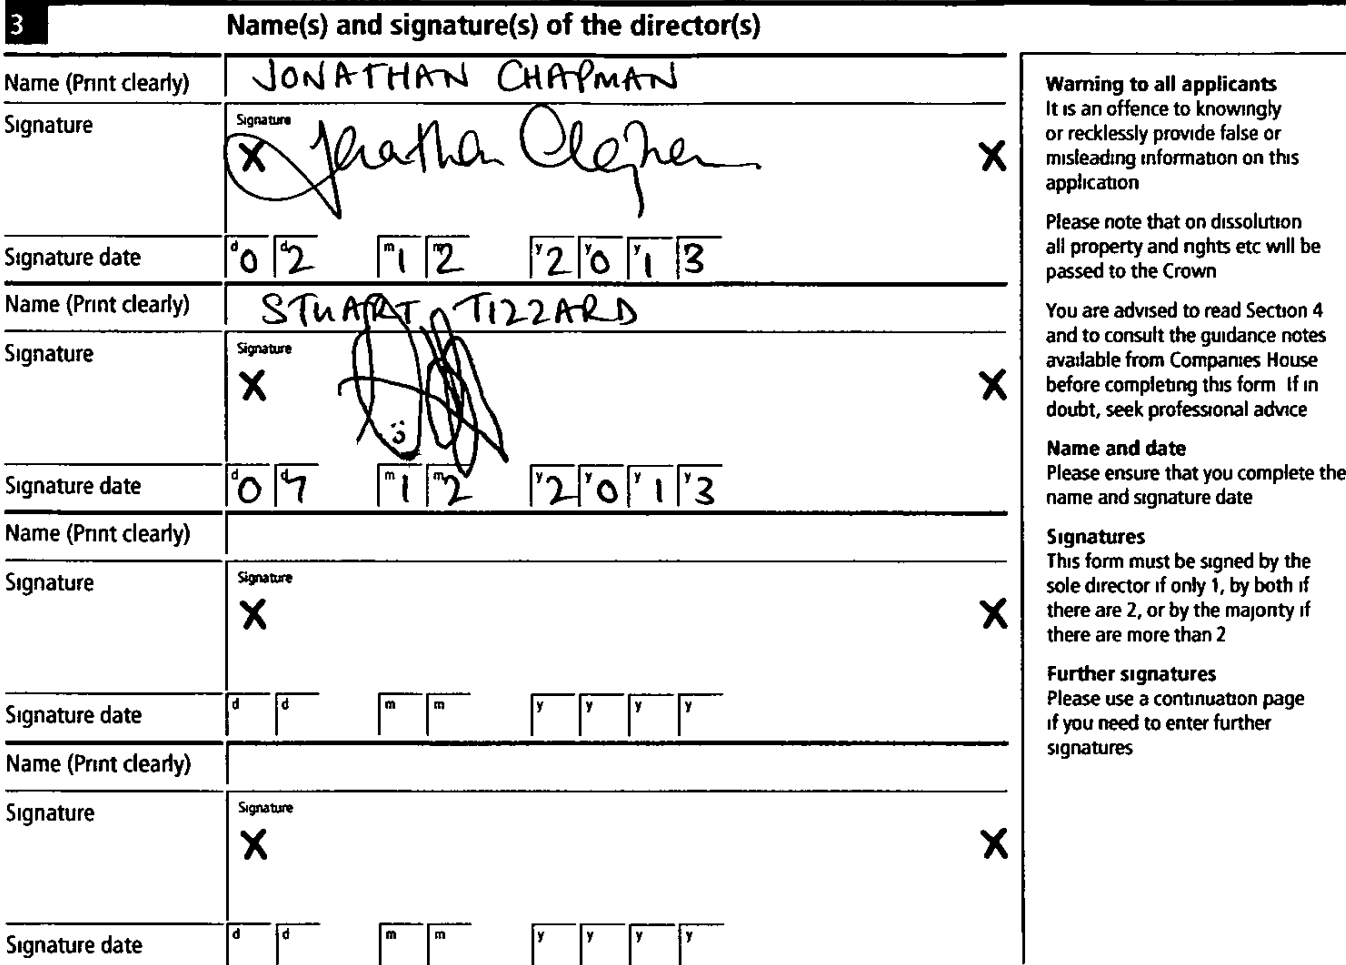 3 Name(s) and signature(s) of the director(s)
Name (Print clearly) JONATHAN CHAPMAN
Signature Signature X Jonathan Chapman X
Signature date d0 d2 m1 m2 y2 y0 y1 3
Name (Print clearly) STUART TIZZARD
Signature Signature X X
Signature date d0 d7 m1 m2 y2 y0 y1 y3
Name (Print clearly)
Signature Signature X X
Signature date d d m m y y y y
Name (Print clearly)
Signature Signature X X
Signature date d d m m y y y y
Warning to all applicants
It is an offence to knowingly
or recklessly provide false or
misleading information on this
application
Please note that on dissolution
all property and rights etc will be
passed to the Crown
You are advised to read Section 4
and to consult the guidance notes
available from Companies House
before completing this form If in
doubt, seek professional advice
Name and date
Please ensure that you complete the
name and signature date
Signatures
This form must be signed by the
sole director if only 1, by both if
there are 2, or by the majority if
there are more than 2
Further signatures
Please use a continuation page
if you need to enter further
signatures